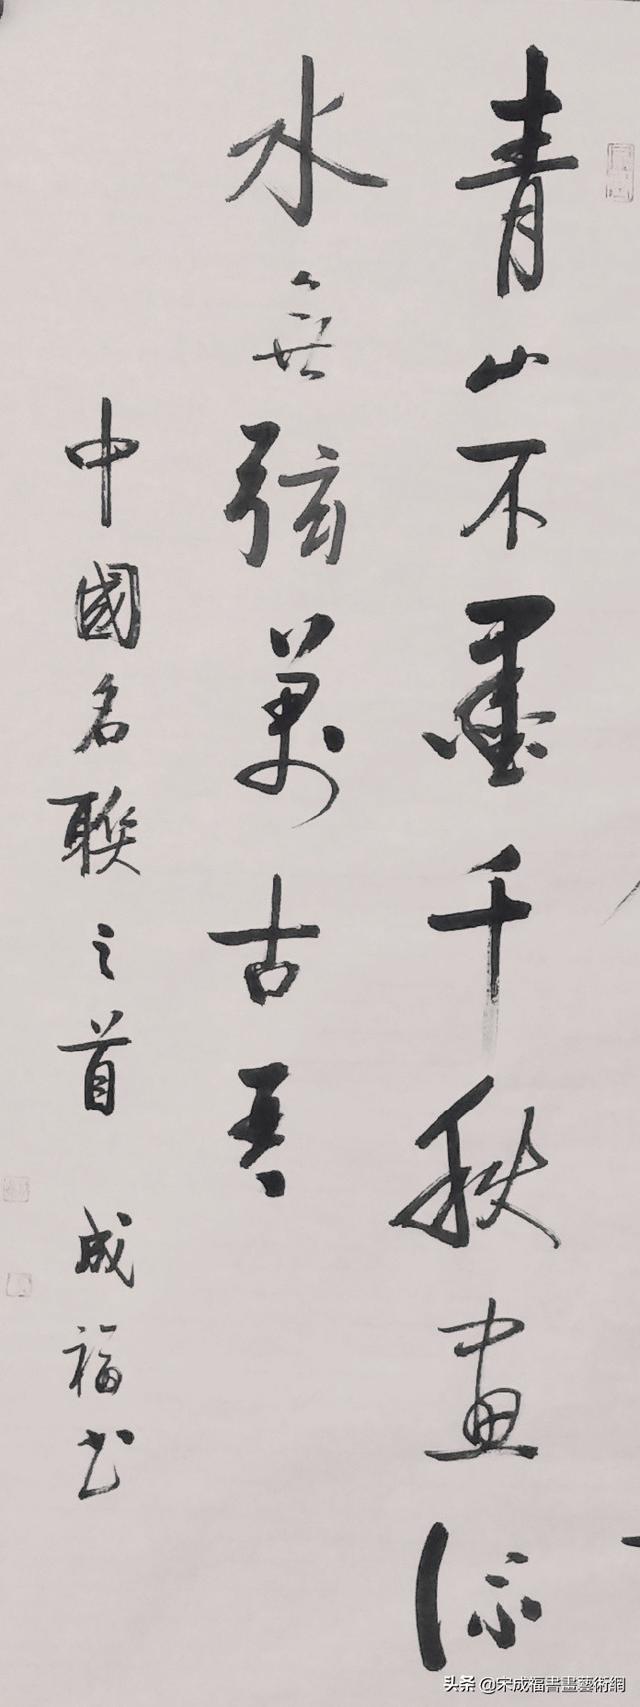 青山不墨千秋畫流
水無弦萬古琴
中國名聯之首 成福书
头条 @宋成福書畫藝術網